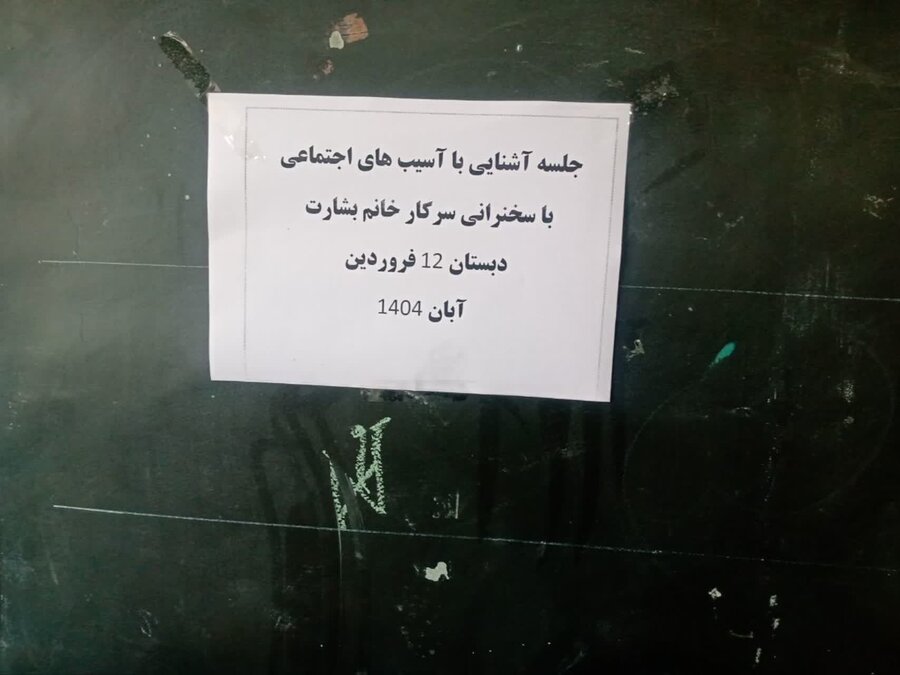 جلسه آشنایی با آسیب های اجتماعی
با سخنرانی سرکار خانم بشارت
دبستان 12 فروردین
آبان 1404